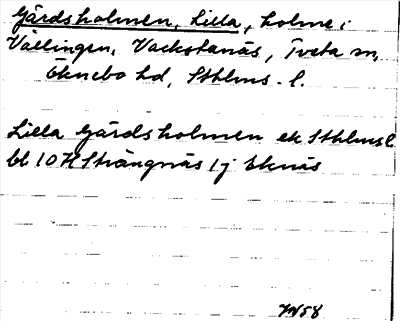 Gårdsholmen, Lilla, holme i
Vällingen, Vackstanäs, Tveta sn,
Öknebo hd, Sthlms l.
Lilla Gårdsholmen ek Sthlms l.
bl 10 H Strängnäs 1 j Eknäs
YN58